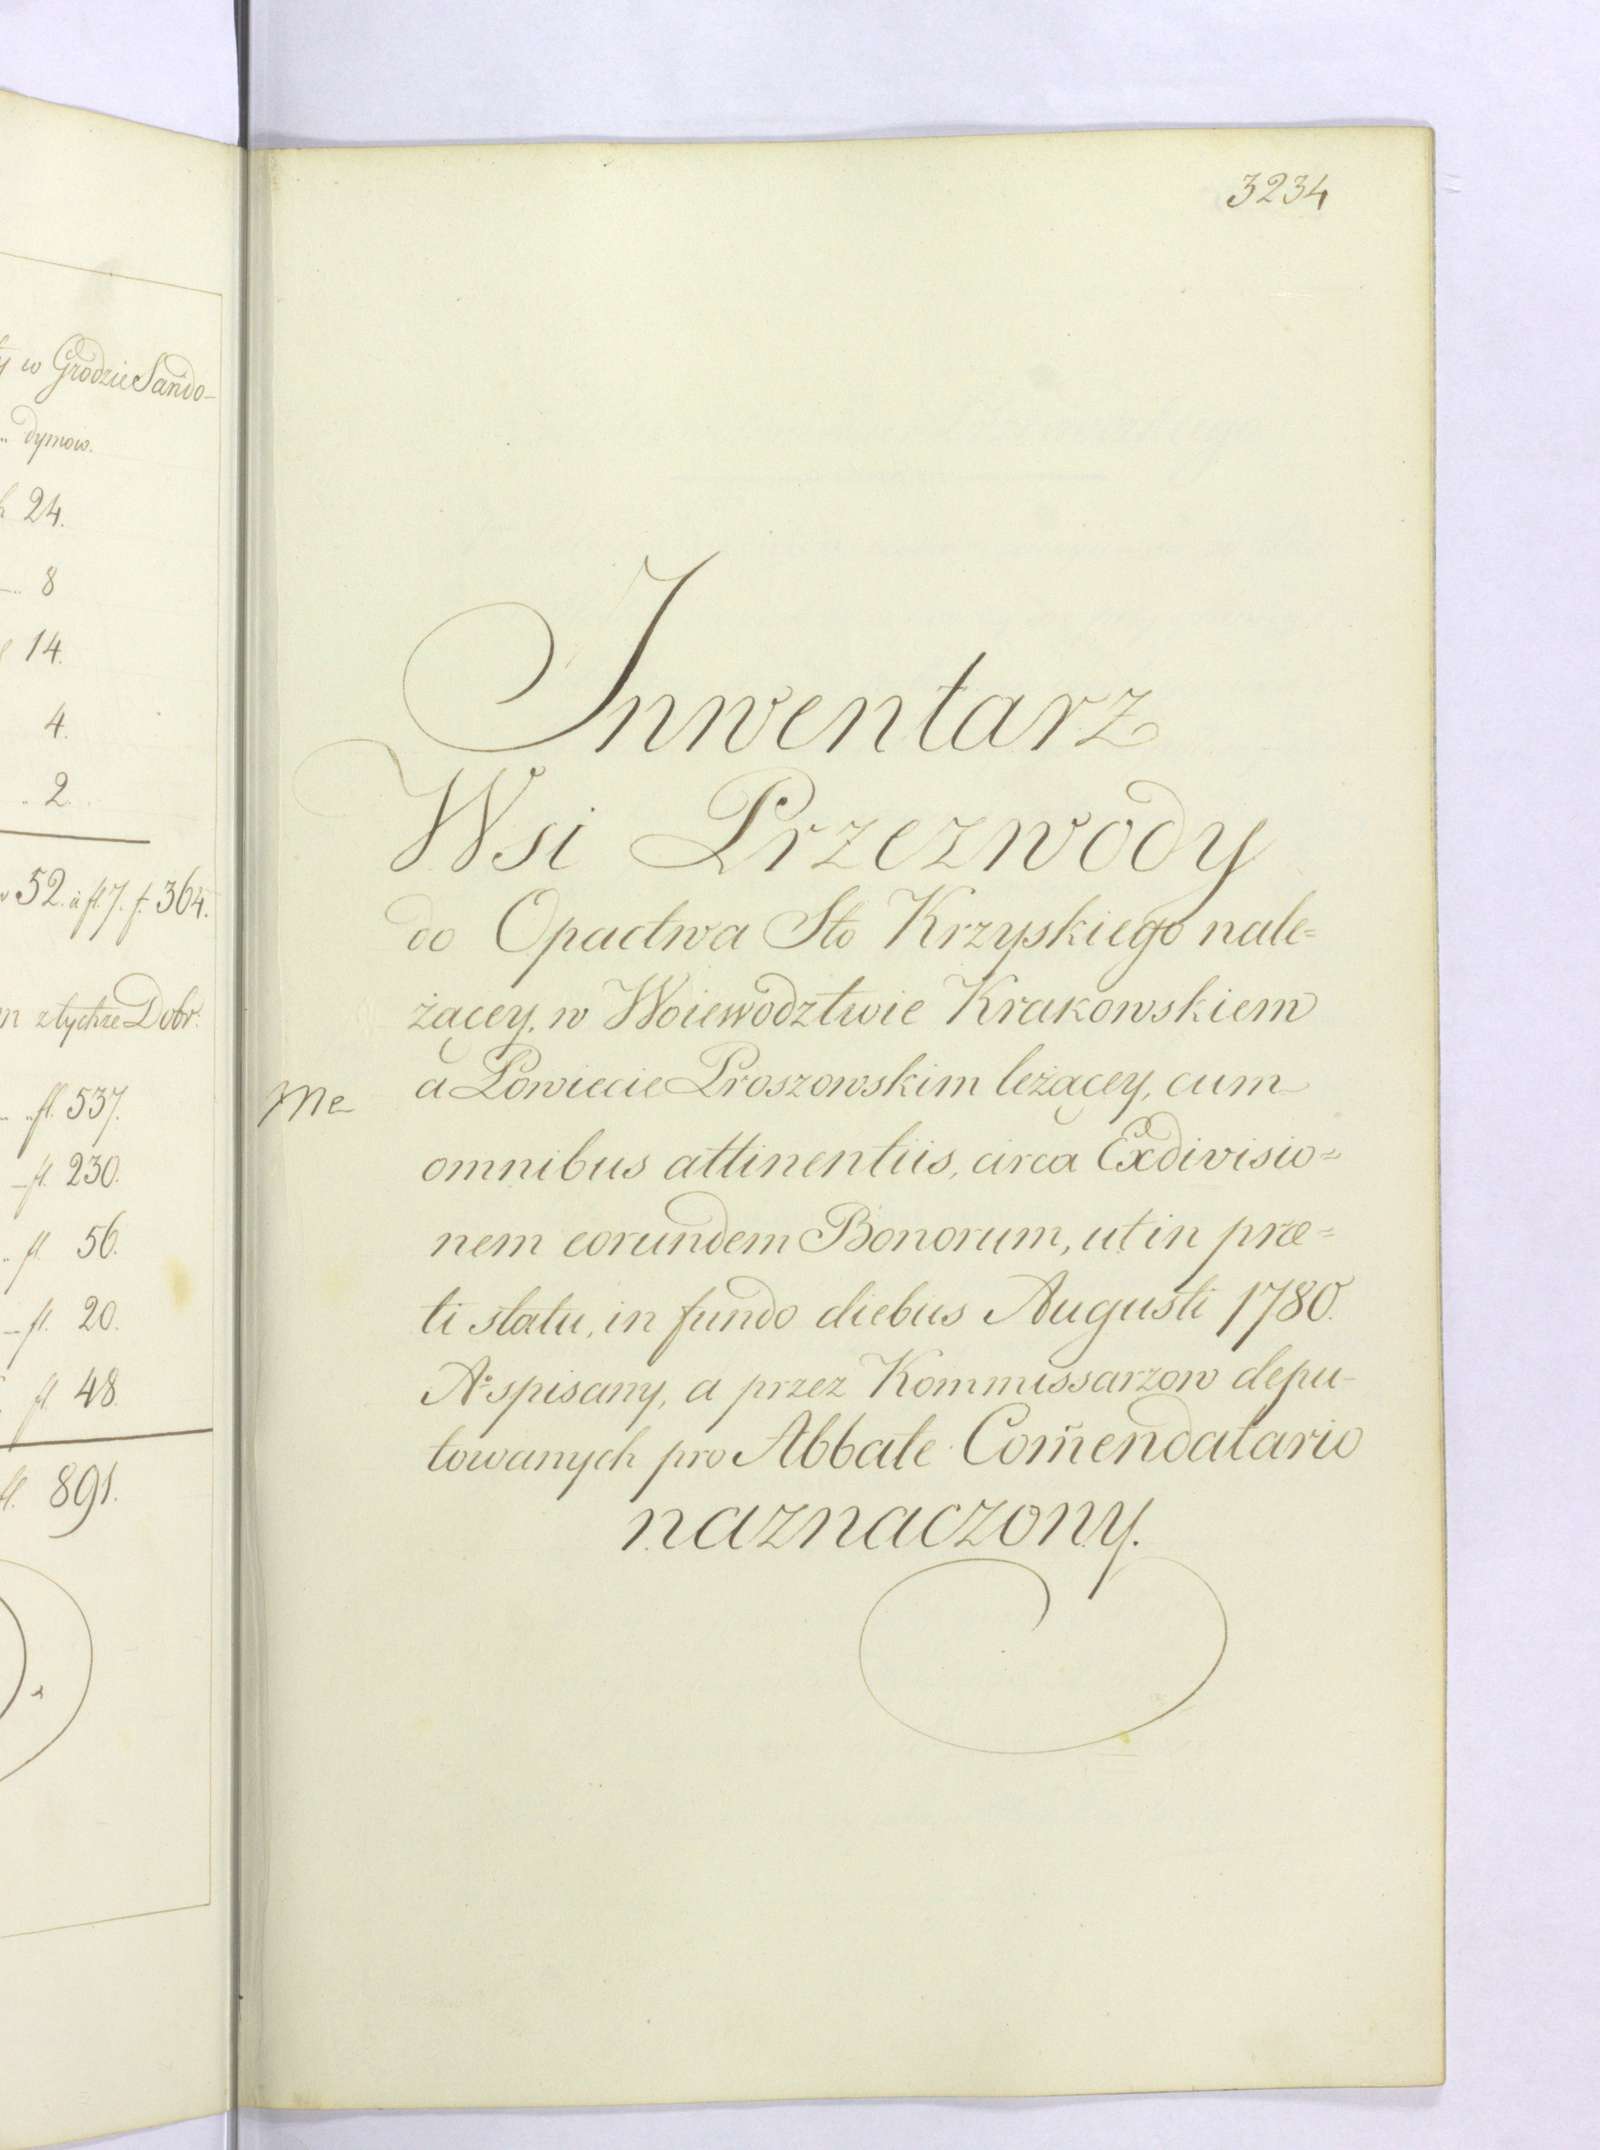 y w Grodzie Sando-
dymow.
24.
8
14.
4.
2.
52. à fl. 7. f. 364.
z tychże Dobr.
fl. 537.
fl. 230.
fl. 56.
fl. 20.
fl. 48.
fl. 891.
3234
Inwentarz
Wsi Przezwody
do Opactwa Sto Krzyskiego nale=
żącey, w Woiewodztwie Krakowskiem
a Powiecie Proszowskim leżącey, cum
Me
omnibus attinentiis, circa Exdivisio=
nem eorundem Bonorum, ut in præ=
ti statu, in fundo diebus Augusti 1780.
Aº spisany, a przez Kommissarzow depu-
towanych pro Abbate Com̃endatario
naznaczony.